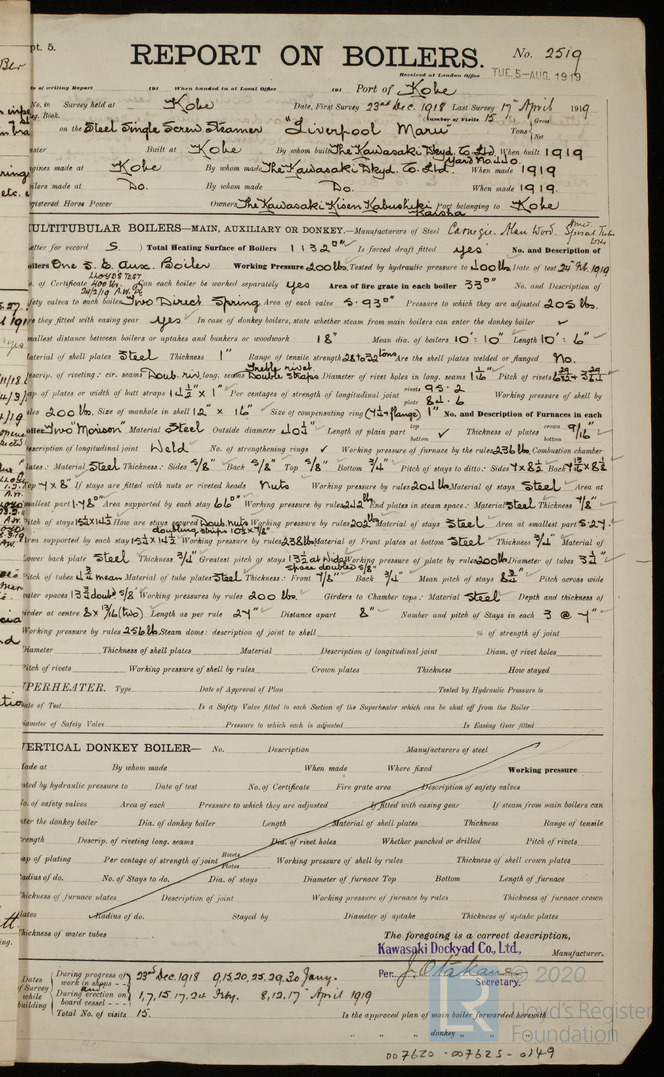 pt. 5.
REPORT ON BOILERS.
No. 2519
Received at London Office
TUE. 5-AUG. 1919
te of writing Report 191 When handed in at Local Office 191 Port of Kobe
No. in Survey held at Kobe Date, First Survey 23rd Dec. 1918 Last Survey 17th April 1919
eg. Book. (Number of Visits 15
on the Steel Single Screw Steamer "Liverpool Maru" Tons Gross Net
Built at Kobe By whom built The Kawasaki Dkyd. Co. Ltd. Yard No. 440. When built 1919
gines made at Kobe By whom made The Kawasaki Dkyd. Co. Ltd. When made 1919
ilers made at Do. By whom made Do. When made 1919.
gistered Horse Power Owners The Kawasaki Kisen Kabushiki Kaisha Port belonging to Kobe
ULTITUBULAR BOILERS—MAIN, AUXILIARY OR DONKEY.—Manufacturers of Steel Carnegie. Alan Wood.
etter for record S. ) Total Heating Surface of Boilers 1132□" Is forced draft fitted yes No. and Description of
oilers One S. E. Aux. Boiler Working Pressure 200 lbs. Tested by hydraulic pressure to 400 lbs. Date of test 24th Feb. 1919
LLOYDS TEST
400 lbs.
o. of Certificate Can each boiler be worked separately yes Area of fire grate in each boiler 33□" No. and Description of
fety valves to each boiler Two Direct Spring Area of each valve 5.93□" Pressure to which they are adjusted 205 lbs.
re they fitted with easing gear yes In case of donkey boilers, state whether steam from main boilers can enter the donkey boiler ✓
mallest distance between boilers or uptakes and bunkers or woodwork 18" Mean dia. of boilers 10': 10" Length 10': 6"
aterial of shell plates Steel Thickness 1" Range of tensile strength 28 to 32 tons Are the shell plates welded or flanged No.
escrip. of riveting: cir. seams Doub. riv. long. seams Treble rivet. Double straps Diameter of rivet holes in long. seams 1 1/16 Pitch of rivets
ap of plates or width of butt straps 14 1/2" x 1" Per centages of strength of longitudinal joint rivets 95.2 plate 84.6 Working pressure of shell by
ules 200 lbs. Size of manhole in shell 12" x 16" Size of compensating ring (7 1/4 + flange) 1" No. and Description of Furnaces in each
oiler Two "Morison" Material Steel Outside diameter 40 1/4" Length of plain part top bottom ✓ Thickness of plates crown bottom 9/16"
escription of longitudinal joint Weld No. of strengthening rings ✓ Working pressure of furnace by the rules 236 lbs. Combustion chamber
lates: Material Steel Thickness: Sides 5/8" Back 5/8" Top 5/8" Bottom 3/4" Pitch of stays to ditto: Sides 7 x 8 1/2 Back
Top 7 x 8" If stays are fitted with nuts or riveted heads Nuts Working pressure by rules 204 lbs. Material of stays Steel Area at
mallest part 1.78□" Area supported by each stay 66□" Working pressure by rules 242 lbs End plates in steam space: Material Steel Thickness 7/8"
itch of stays 15 1/2 x 14 1/2 How are stays secured Doub. nuts doubling strips Working pressure by rules 202 lbs Material of stays Steel Area at smallest part 5.27
rea supported by each stay 15 1/2 x 14 1/2 Working pressure by rules 238 lbs Material of Front plates at bottom Steel Thickness 3/4" Material of
Lower back plate Steel Thickness 3/4" Greatest pitch of stays 13 1/2 at wide space doubled 5/8" Working pressure of plate by rules 200 lbs. Diameter of tubes 3 1/4"
Pitch of tubes 4 3/4 mean Material of tube plates Steel Thickness: Front 7/8" Back 3/4" Mean pitch of stays 8 3/4" Pitch across wide
ater spaces 13 3/4 doub. 5/8" Working pressures by rules 200 lbs. Girders to Chamber tops: Material Steel Depth and thickness of
irder at centre 8 x 13/16 (two) Length as per rule 27" Distance apart 8" Number and pitch of Stays in each 3 @ 7"
Working pressure by rules 256 lbs. Steam dome: description of joint to shell % of strength of joint
Diameter Thickness of shell plates Material Description of longitudinal joint Diam. of rivet holes
Pitch of rivets Working pressure of shell by rules Crown plates Thickness How stayed
UPERHEATER. Type Date of Approval of Plan Tested by Hydraulic Pressure to
ate of Test Is a Safety Valve fitted to each Section of the Superheater which can be shut off from the Boiler
iameter of Safety Valve Pressure to which each is adjusted Is Easing Gear fitted
ERTICAL DONKEY BOILER— No. Description Manufacturers of steel
ade at By whom made When made Where fixed Working pressure
sted by hydraulic pressure to Date of test No. of Certificate Fire grate area Description of safety valves
o. of safety valves Area of each Pressure to which they are adjusted If fitted with easing gear If steam from main boilers can
nter the donkey boiler Dia. of donkey boiler Length Material of shell plates Thickness Range of tensile
trength Descrip. of riveting long. seams Dia. of rivet holes Whether punched or drilled Pitch of rivets
ap of plating Per centage of strength of joint Rivets Plates Working pressure of shell by rules Thickness of shell crown plates
adius of do. No. of Stays to do. Dia. of stays Diameter of furnace Top Bottom Length of furnace
hickness of furnace plates Description of joint Working pressure of furnace by rules Thickness of furnace crown
lates Radius of do. Stayed by Diameter of uptake Thickness of uptake plates
hickness of water tubes
The foregoing is a correct description,
Kawasaki Dockyad Co., Ltd., Manufacturer.
Per
Secretary.
Dates of Survey while building
During progress of work in shops - - 23rd Dec. 1918 9, 15, 20, 25, 29, 30 Jany.
and
During erection on board vessel - - - 1, 7, 15, 17, 24 Feby. 8, 12, 17 April 1919
Total No. of visits 15.
Is the approved plan of main boiler forwarded herewith
" " " donkey " " "
© 2020
LR
Lloyd's Register
Foundation
007620-007625-0149